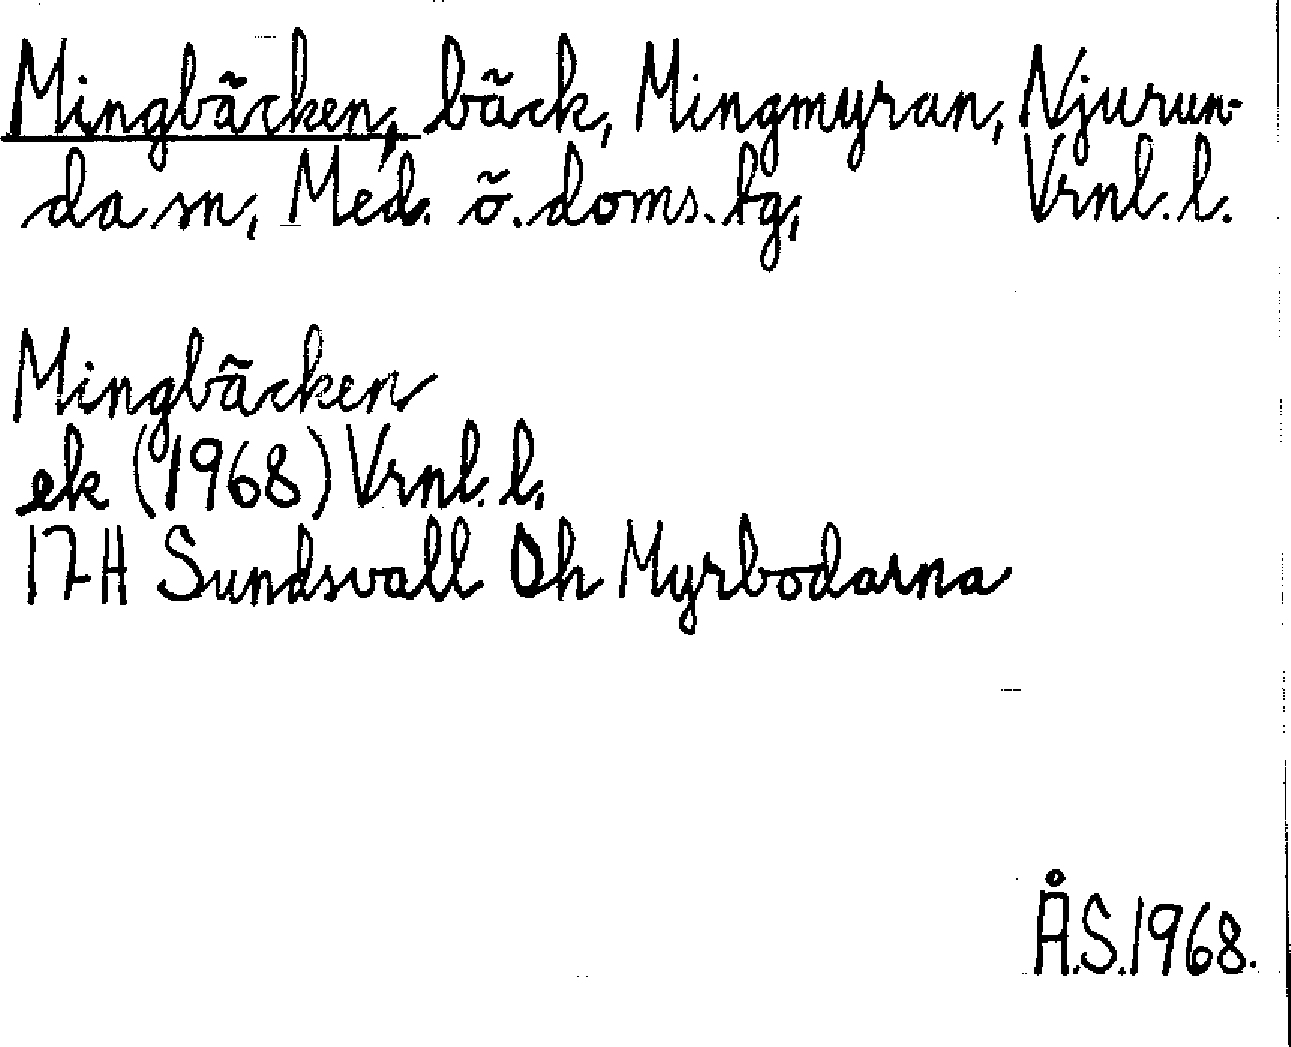 Mingbäcken, bäck, Mingmyran, Njurun-
da sn, Med. ö. doms. tg, Vrnl. l.
Mingbäcken
ek (1968) Vrnl. l.
17H Sundsvall 0h Myrbodarna
Å.S. 1968.